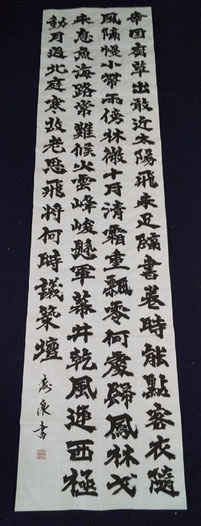 幸因腐草出敢近太陽飛未足臨書卷時能點客衣隨
風隔幔小帶雨傍林微十月清霜重飄零何處歸鳳林戈
未息魚海路常難候火雲峰峻懸軍幕井乾風連西極
動月過北庭寒故老思飛將何時議築壇
書